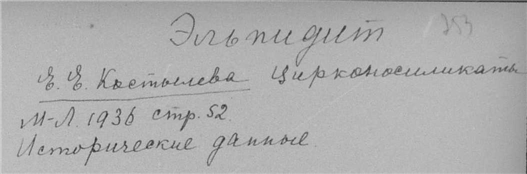 Эльпидит 353
Е.Е. Костылева Цирконосиликаты
М-Л. 1936 стр. 52.
Исторические данные